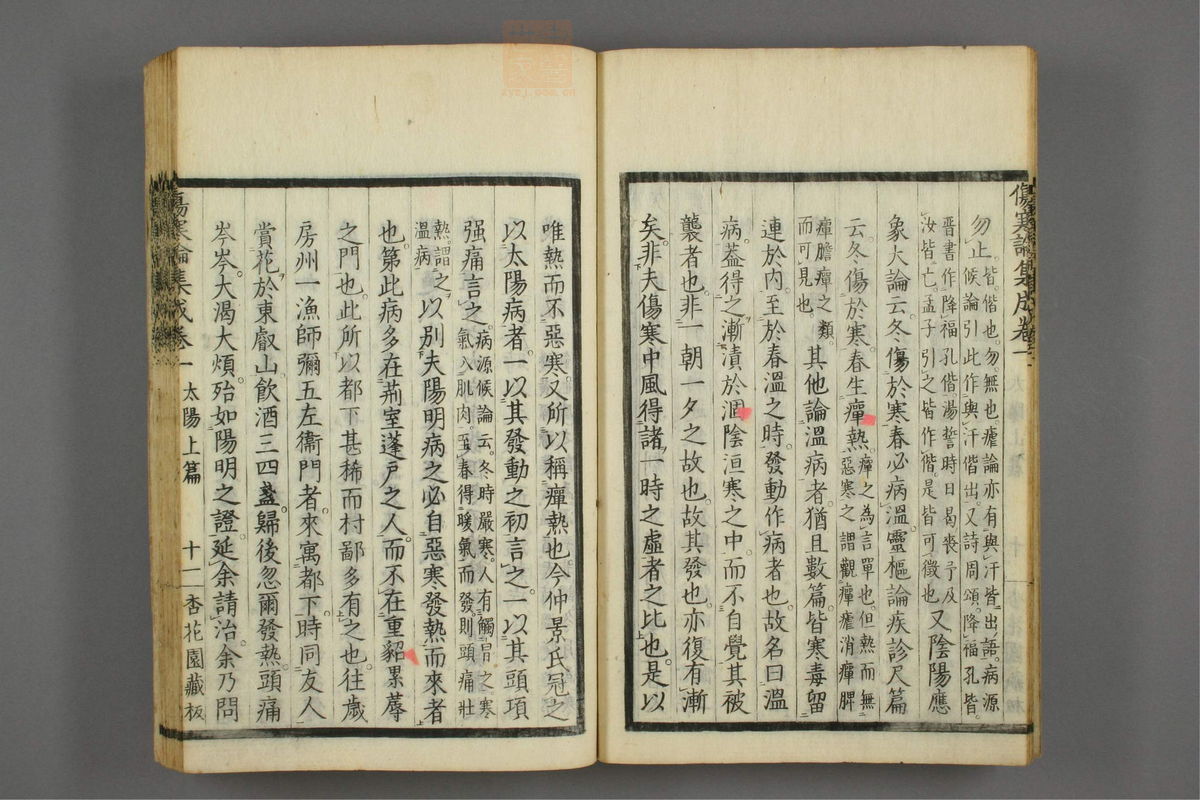 傷寒論集成卷一
勿止。皆。偕也。勿。無也。瘧論亦有與汗皆出語。病源
候論引此作與汗偕出。又詩周頌。降福孔皆。
晋書作降福孔偕。湯誓時日曷喪。予及
汝皆亡。孟子引之皆作偕。是皆可徵也。又陰陽應
象大論云。冬傷於寒。春必病溫。靈樞論疾診尺篇
云。冬傷於寒。春生癉熱。癉之為言單也。但熱而無
惡寒之謂。觀癉瘧消癉脾
癉膽癉之類。
而可見也其他論溫病者。猶且數篇。皆寒毒留
連於內。至於春溫之時。發動作病者也。故名曰溫
病。蓋得之漸漬於涸陰沍寒之中。而不自覺其被
襲者也。非一朝一夕之故也。故其發也。亦復有漸
矣。非夫傷寒中風得諸一時之虛者之比也。是以
唯熱而不惡寒。又所以稱癉熱也。今仲景氏冠之
以太陽病者。一以其發動之初言之。一以其頭項
强痛言之。病源候論云。冬時嚴寒。人有觸冒之。寒
氣入肌肉。至春得暖氣而發。則頭痛壯
熱。謂之
溫病以別夫陽明病之必自惡寒發熱而來者
也。第此病多在荊室蓬戶之人。而不在重貂累蓐
之門也。此所以都下甚稀而村鄙多有之也。往歲
房州一漁師彌五左衞門者。來寓都下。時同友人
賞花於東叡山。飲酒三四盞。歸後忽爾發熱。頭痛
岑岑。大渴大煩。殆如陽明之證。延余請治。余乃問
傷寒論集成卷一 太陽上篇 十二 杏花園藏板